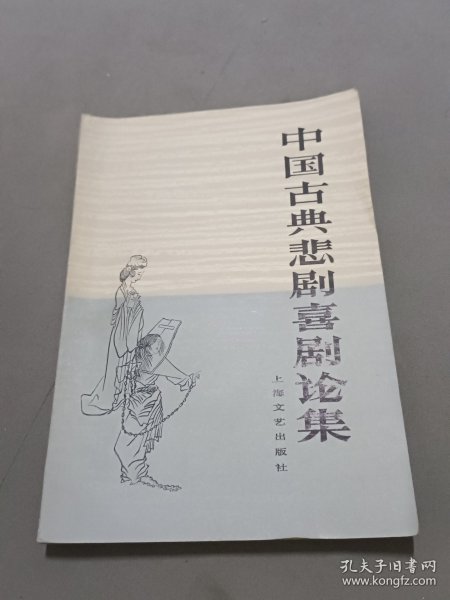 中国古典悲剧喜剧论集
上海文艺出版社
孔夫子旧书网
www.kongfz.com